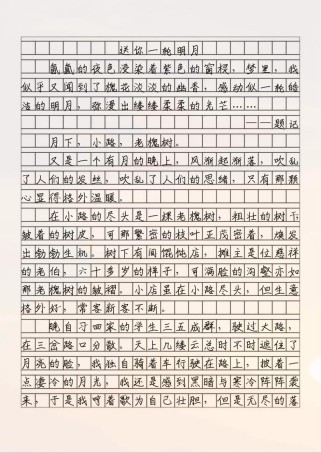 送你一轮明月
氤氲的夜色浸染着紫色的窗棂，梦里，我
似乎又闻到了槐花淡淡的幽香，感动似一轮皓
洁的明月，弥漫出缕缕柔柔的光芒……
——题记
月下，小路，老槐树。
又是一个有月的晚上，风渐起渐落，吹乱
了人们的发丝，吹乱了人们的思绪，只有那颗
心显得格外温暖。
在小路的尽头是一棵老槐树，粗壮的树干
皱着的树皮，可那繁密的枝叶正茂密着，焕发
出勃勃生机。树下有间馄饨店，摊主是位慈祥
的老伯，六十多岁的样子，可满脸的沟壑亦如
那老槐树的皱褶。小店虽在小路尽头，但生意
格外好，常客新客不断。
晚自习回家的学生三五成群，驶过大路，
在三岔路口分散。天上几缕云总时不时遮住了
月亮的脸，我独自骑着车行驶在路上，披着一
点凄冷的月光，我还是感到黑暗与寒冷阵阵袭
来，于是我哼着歌为自己壮胆，但是无尽的落